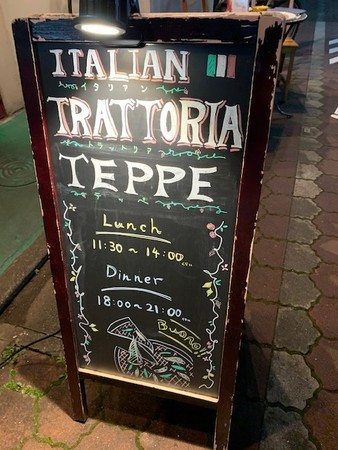 ITALIAN
イタリアン
TRATTORIA
トラットリア
TEPPE
テッペ
Lunch
11:30~14:00
Dinner
18:00~21:00
Buono!